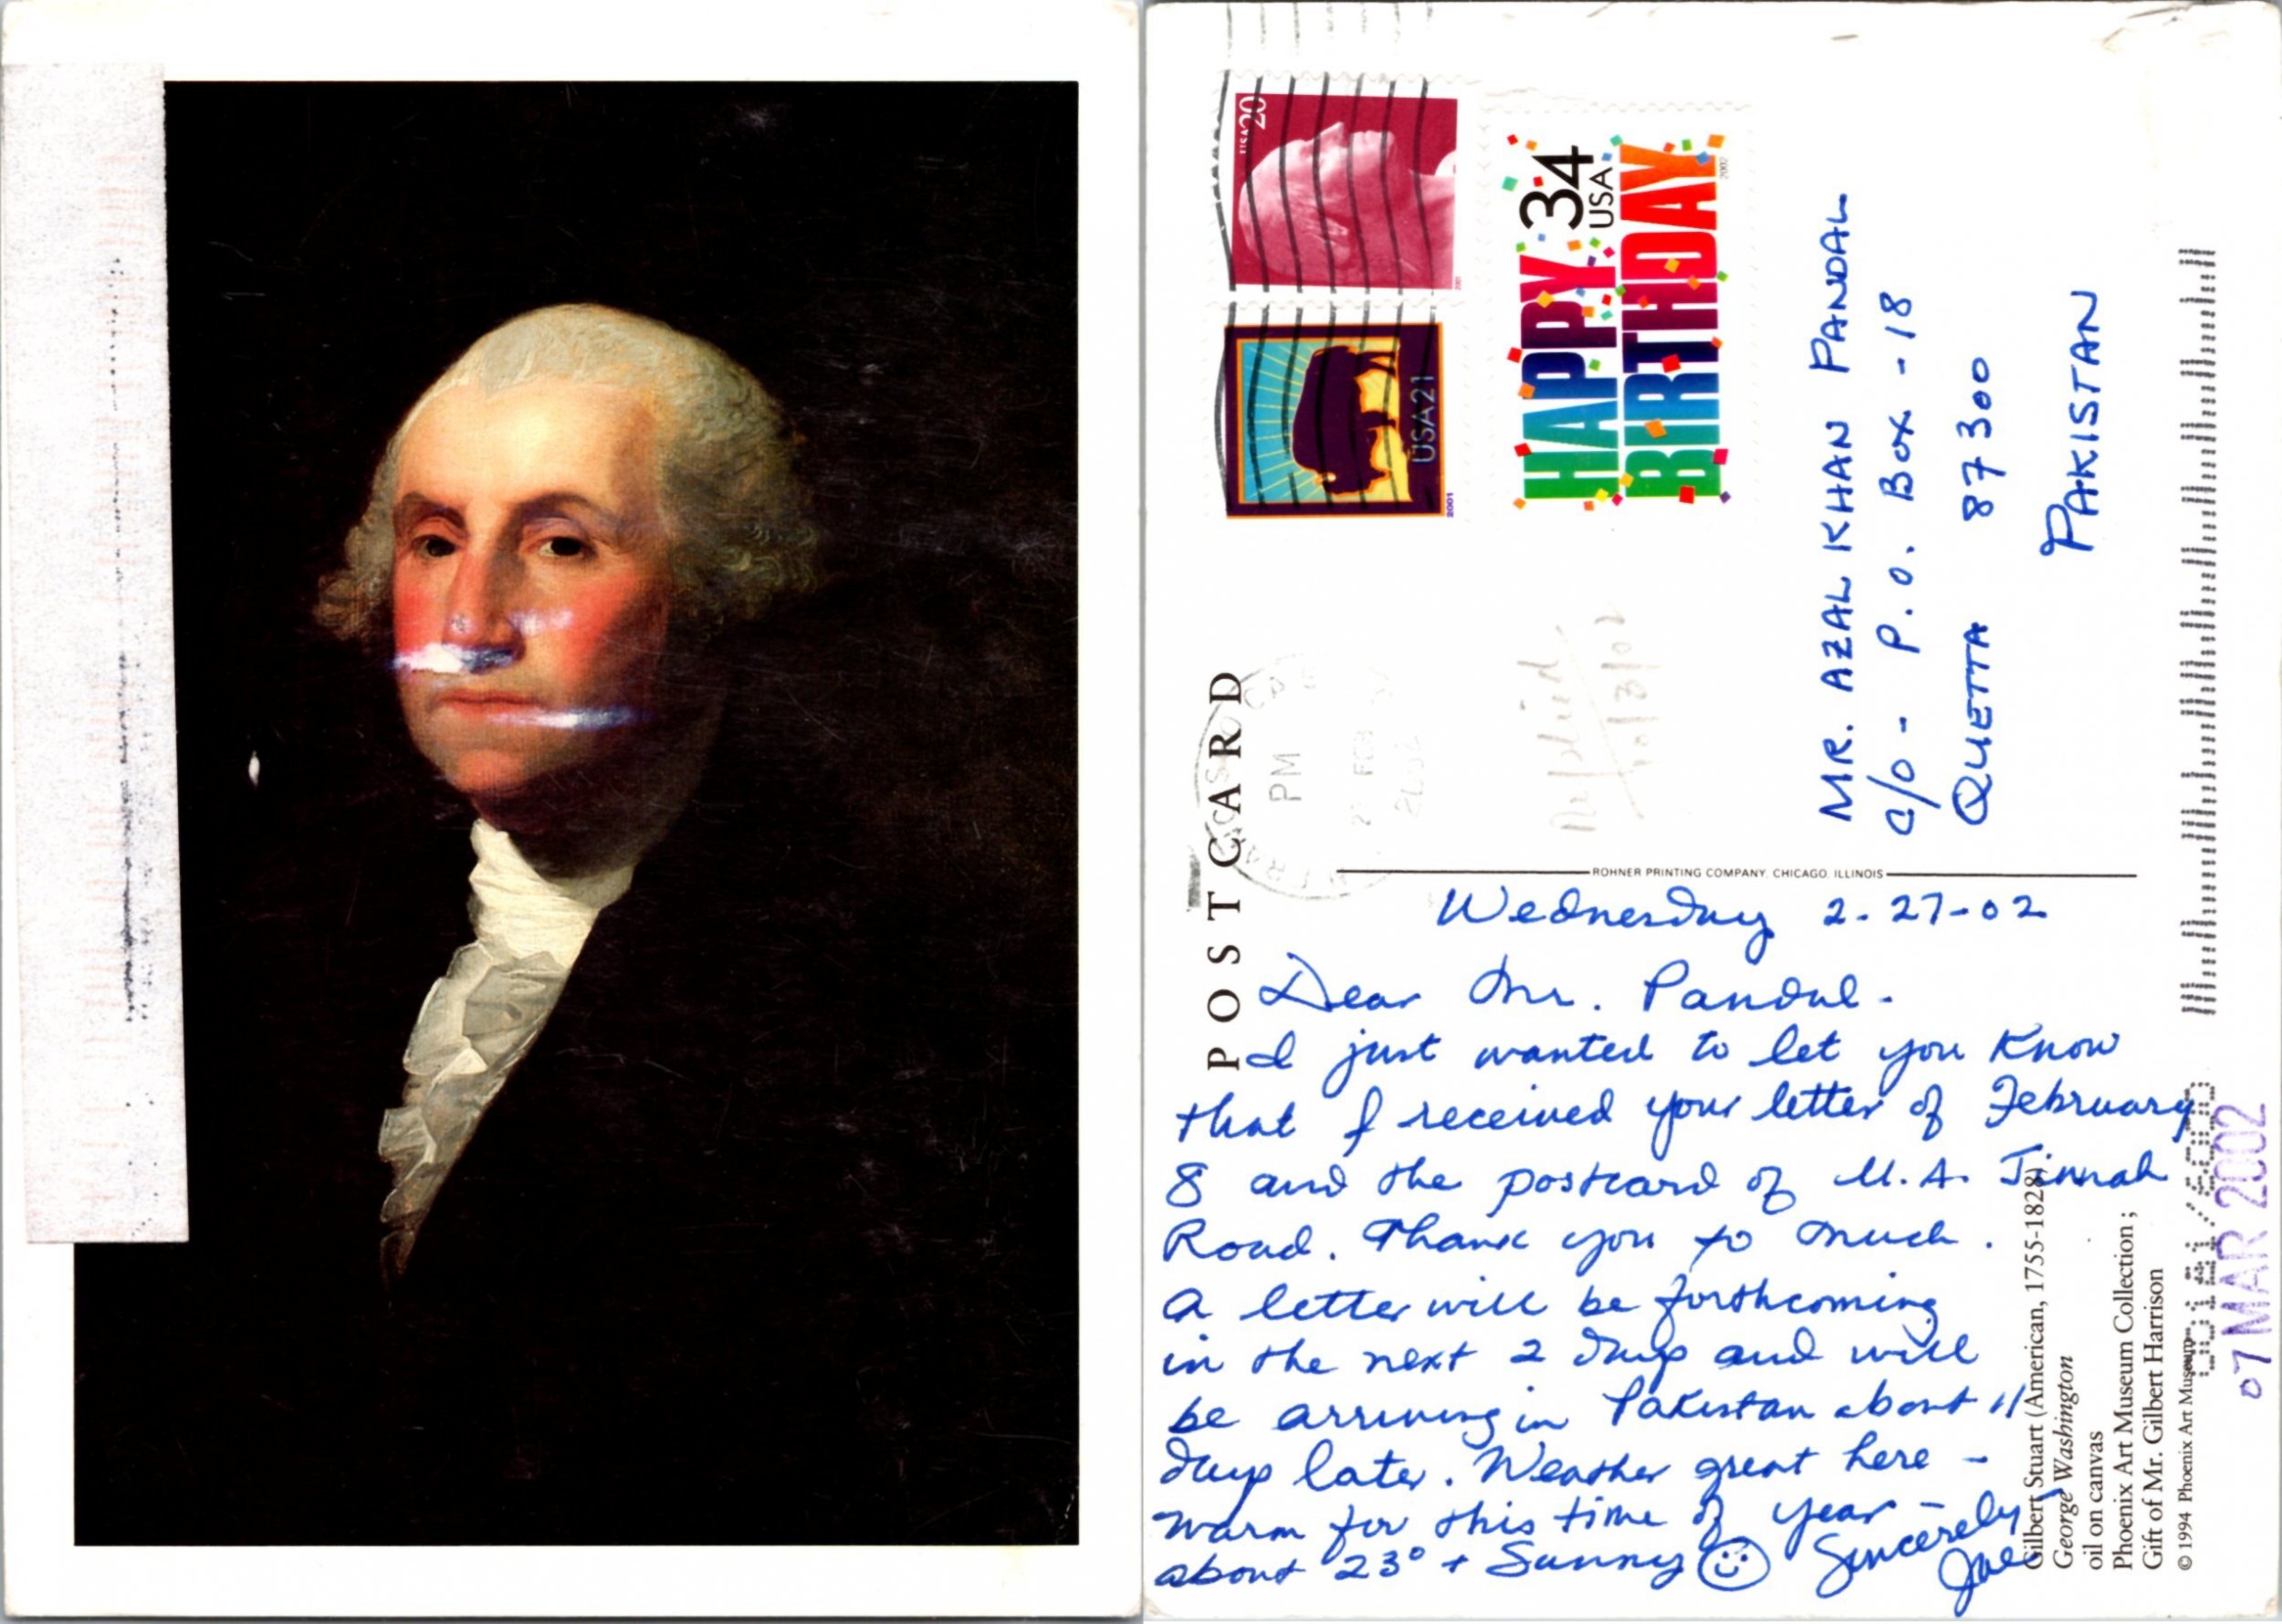 USA20
2001
USA21
2001
34
USA
HAPPY
BIRTHDAY
2002
MR. AZAL KHAN PANDAL
c/o - P.O. Box - 18
QUETTA 87300
PAKISTAN
POSTCARD
PM
FEB
Replied
10/3/02
ROHNER PRINTING COMPANY, CHICAGO, ILLINOIS
Wednesday 2-27-02
Dear Mr. Pandal.
I just wanted to let you know
that I received your letter of February
8 and the postcard of M.A. Jinnah
Road. Thank you so much.
A letter will be forthcoming
in the next 2 days and will
be arriving in Pakistan about 11
days later. Weather great here -
warm for this time of year -
about 23° + Sunny Sincerely
Gilbert Stuart (American, 1755-1828)
George Washington
oil on canvas
Phoenix Art Museum Collection;
Gift of Mr. Gilbert Harrison
© 1994 Phoenix Art Museum
07 MAR 2002